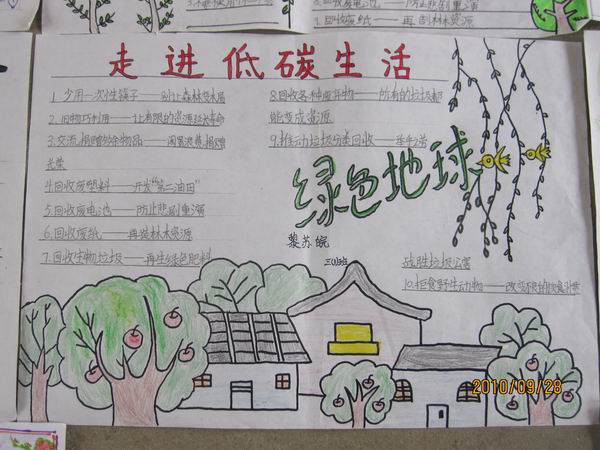 5.回收废电池——防止悲剧重演
6.回收废纸——再造林木资源
走进低碳生活
1.少用一次性筷子——别让森林变木屑
2.旧物巧利用——让有限的资源延长寿命
3.交流捐赠多余物品——闲置浪费,捐赠
光荣
4.回收废塑料——开发“第二油田”
5.回收废电池——防止悲剧重演
6.回收废纸——再造林木资源
7.回收生物垃圾——再生绿色肥料
8.回收各种废弃物——所有的垃圾都
能变成资源
9.推动垃圾分类回收——举手之劳
绿色地球
黎苏皖
三(1)班
战胜垃圾公害
10.拒食野生动物——改变不良的饮食习惯
2010/09/28